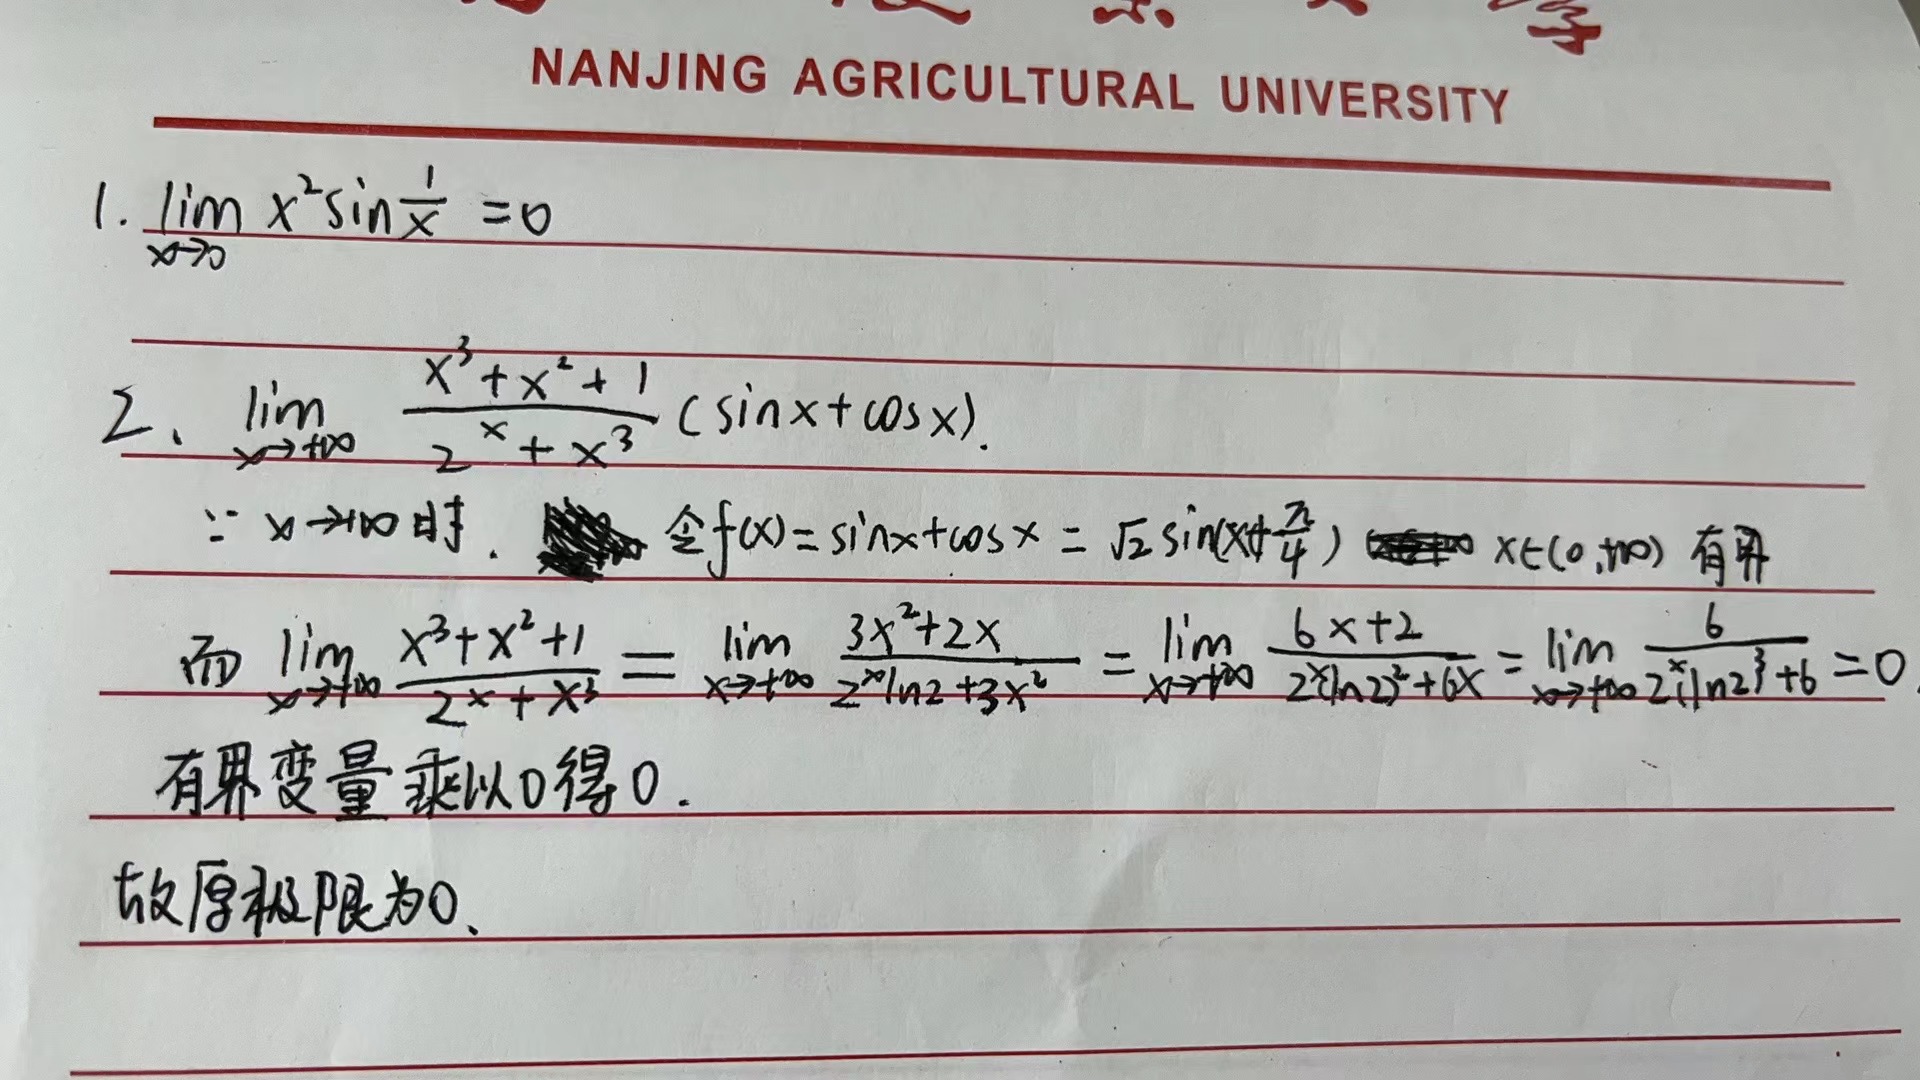 NANJING AGRICULTURAL UNIVERSITY
1. lim_{x→0} x² sin 1/x = 0
2、 lim_{x→+∞} (x³+x²+1)/(2^x+x³) (sinx+cosx).
∵ x→+∞时. 令f(x)=sinx+cosx=√2 sin(x+π/4) x∈(0,+∞) 有界
而 lim_{x→+∞} (x³+x²+1)/(2^x+x³) = lim_{x→+∞} (3x²+2x)/(2^x ln2+3x²) = lim_{x→+∞} (6x+2)/(2^x(ln2)²+6x) = lim_{x→+∞} 6/(2^x(ln2)³+6) = 0.
有界变量乘以0得0.
故原极限为0、